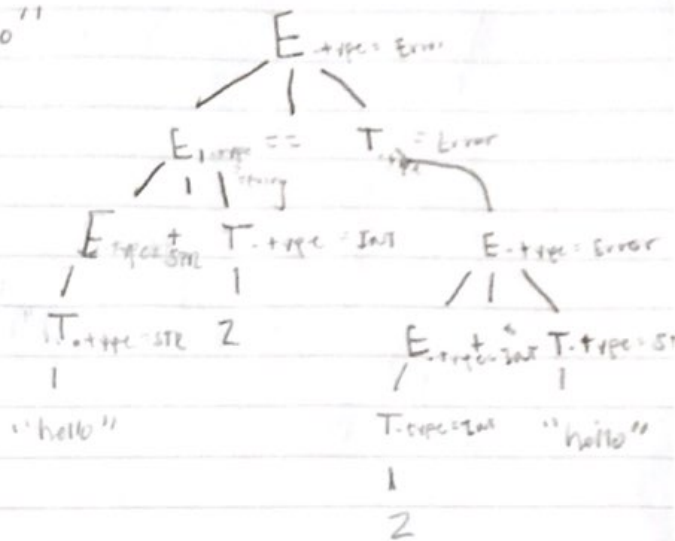 o"
E .type = Error
E₁ .type == T .type = Error
string
E .type = STR + T .type = INT E .type = Error
T .type = STR 2 E .type = INT + T .type = ST
"hello" T .type = INT "hello"
2